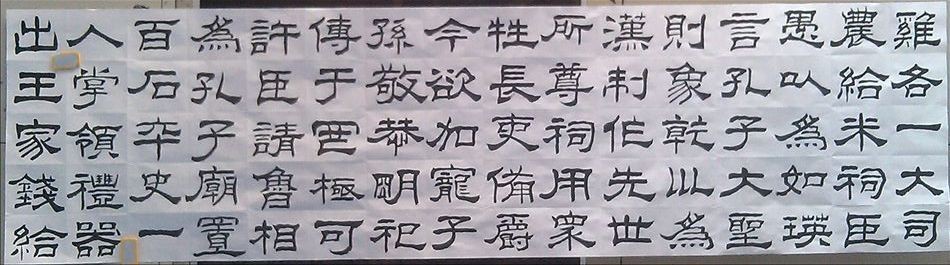 雞各一大司
農給米祠臣
愚以為如瑛
言孔子大聖
則象乾川為
漢制作先世
所尊祠用眾
牲長吏備爵
今欲加寵子
孫敬恭明祀
傳于罔極可
許臣請魯相
為孔子廟置
百石卒史一
人掌領禮器
出王家錢給